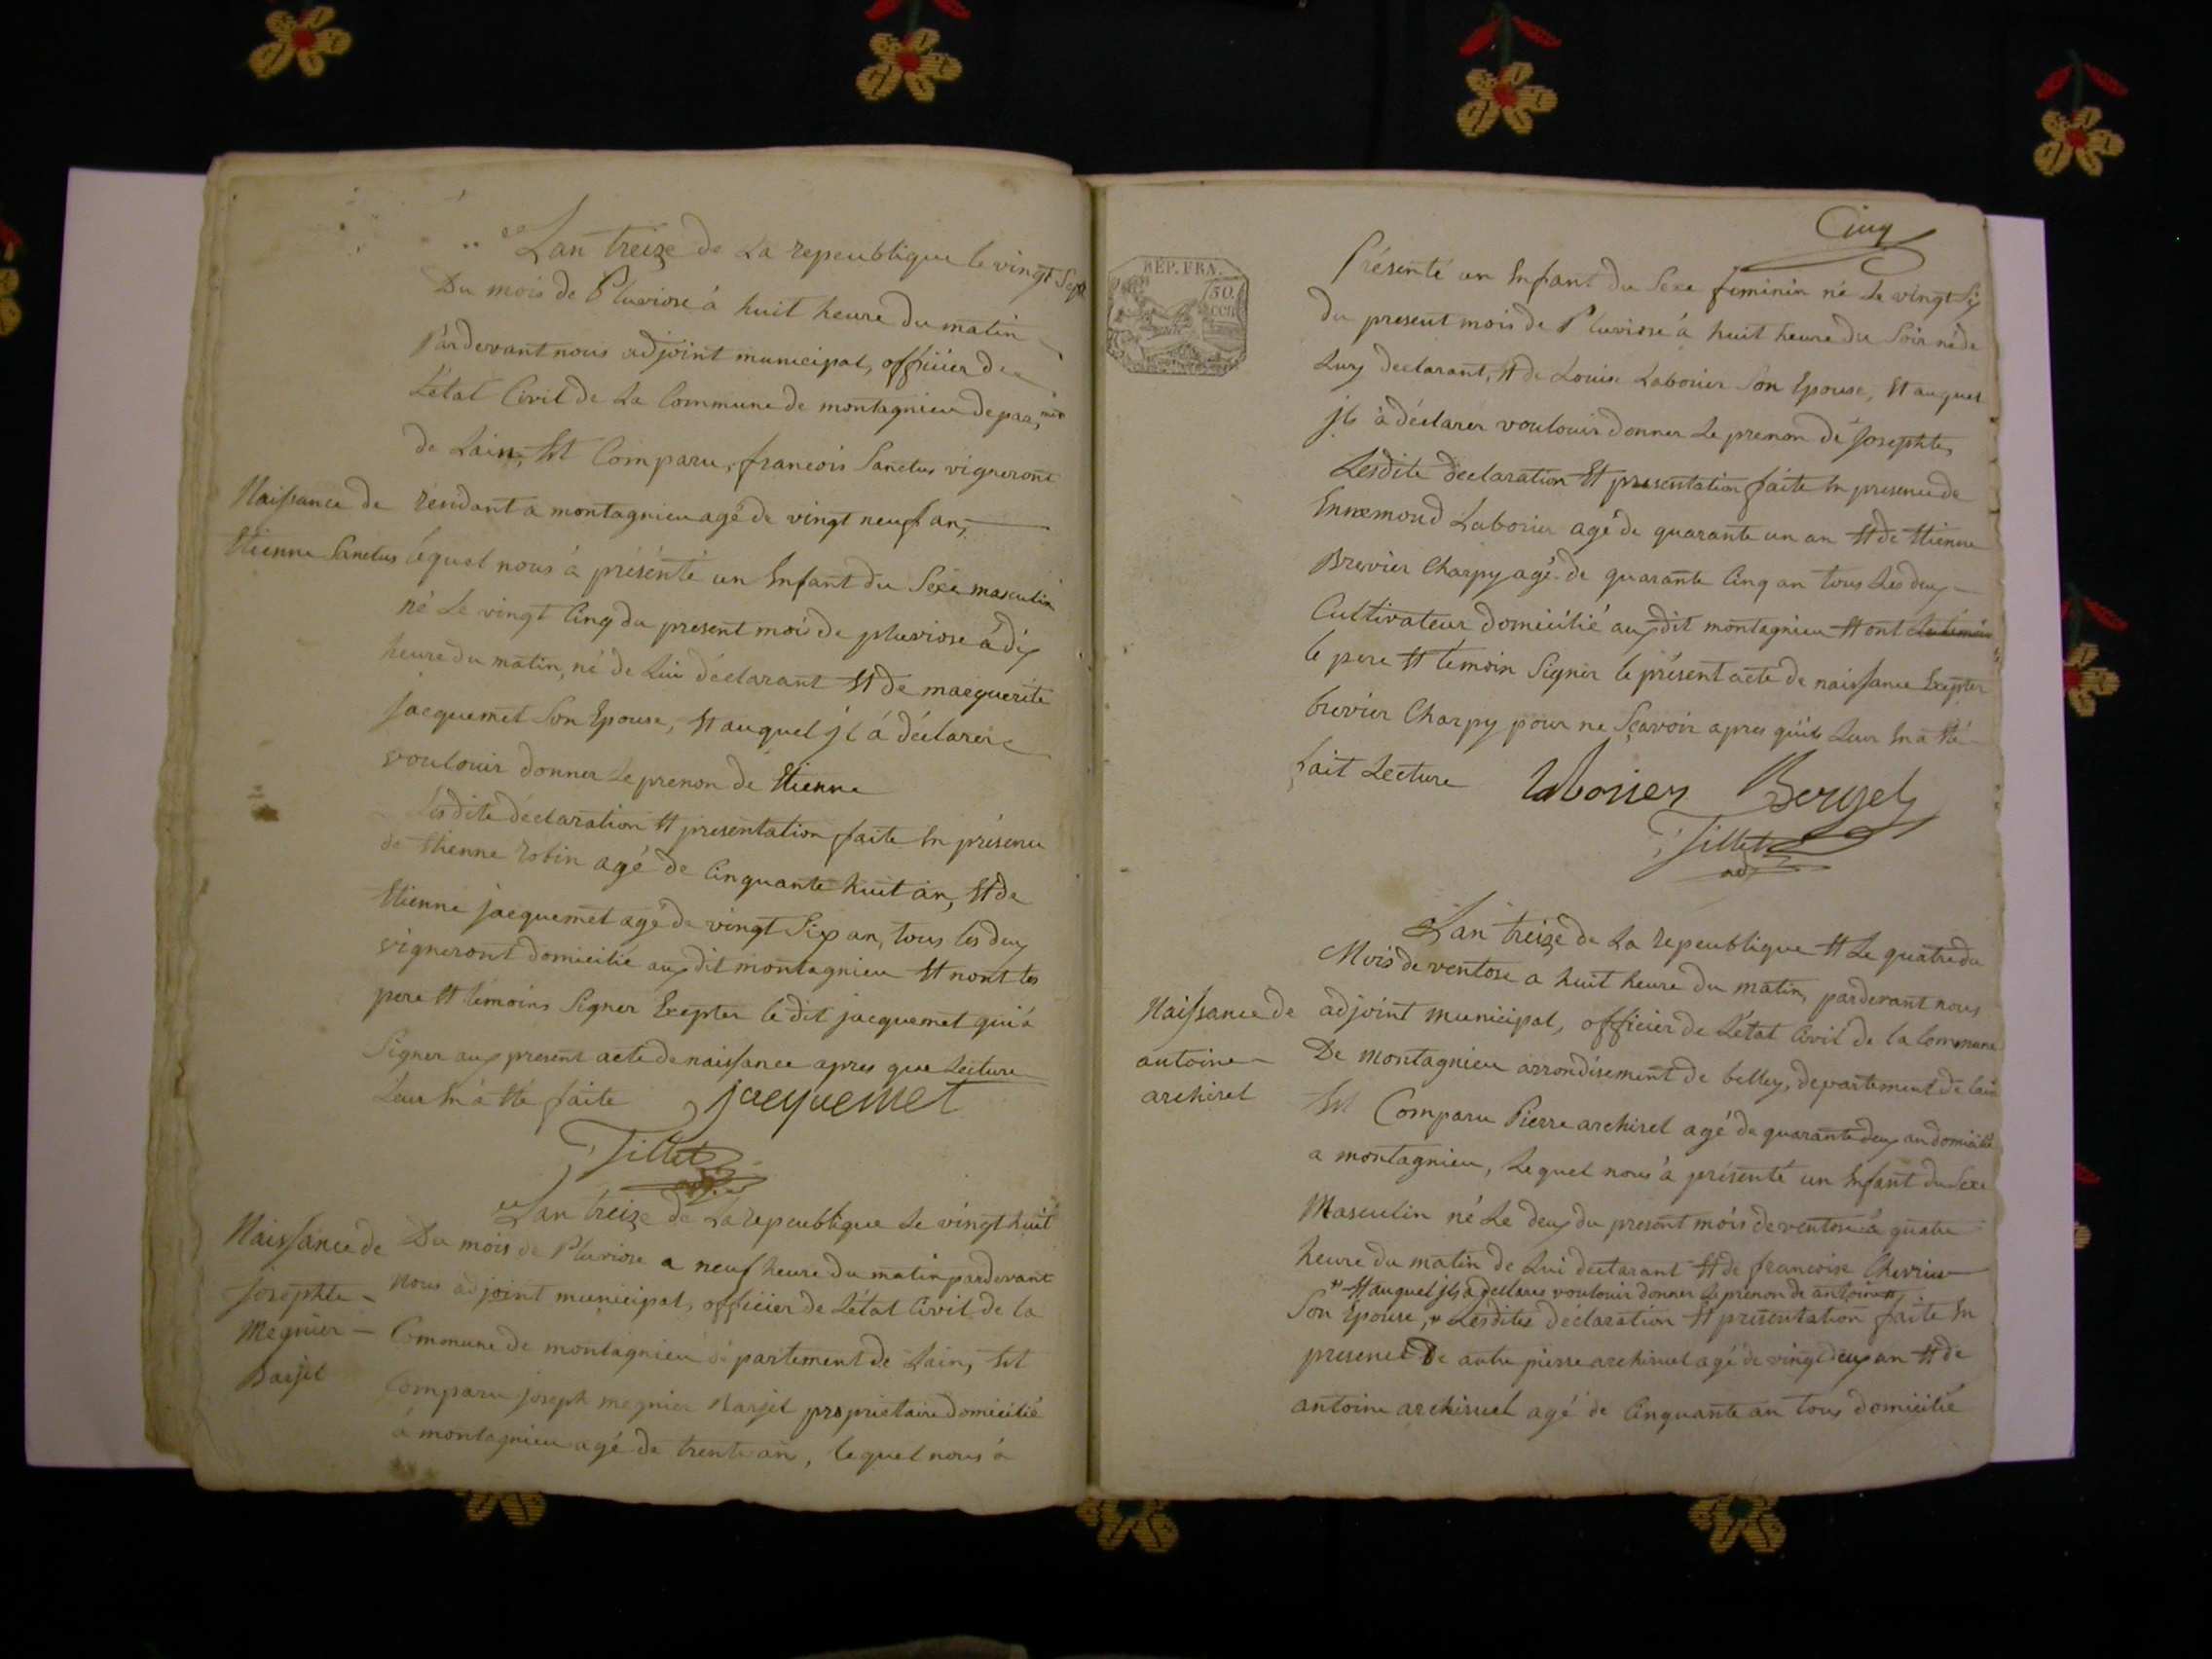 Lan treize de La repeublique le vingt Sept
Du mois de Pluviose à huit heure du matin
Pardevant nous adjoint municipal, officier de
L'état Civil de La Commune de montagnieu depar,ment
de Lain, Est Comparu, francois Sanctus vigneront
Naissance de
Etienne Sanctus
résidant a montagnieu agé de vingt neuf an,
lequel nous à présenté un Enfant du Sexe masculin
né Le vingt Cinq du present mois de pluviose à dix
heure du matin, né de Lui déclarant Et de marguerite
jacquemet Son Epouse, Et auquel jl à déclarer
voulouir donner Le prenon de Etienne
Lesdite déclaration Et presentation faite En présence
de Etienne robin agé de Cinquante huit an, Et de
Etienne jacquemet agé de vingt Six an, tous les deux
vigneront domicilié aux dit montagnieu Et nont les
pere Et témoins Signer Exepter le dit jacquemet qui à
Signer aux present acte de naissance apres que Lecture
Leur En à Eté faite jacquemet
Tillet
Lan treize de La repeublique Le vingt huit
Naissance de
Josephte
Megnier
Barjel
Du mois de Pluviose a neuf heure du matin pardevant
nous adjoint municipal, officier de L'état Civil de la
Commune de montagnieu département de Lain, Est
Comparu joseph megnier Barjel propriétaire domicilié
à montagnieu agé de trente an, lequel nous à
Cinq
REP. FRA.
50.
CEN
Présenté un Enfant du Sexe feminin né Le vingt Six
du present mois de Pluviose à huit heure du Soir né de
Luy declarant, Et de Louise Laborier Son Epouse, Et auquel
jls à déclarer voulouir donner Le prenon de Josephte,
Lesdite declaration Et presentation faite En presence de
Ennemond Laborier agé de quarante un an Et de Etienne
Brevier Charpy agé de quarante Cinq an tous Les deux
Cultivateur domicilié aux dit montagnieu Et ont
le pere Et témoin Signer le présent acte de naissance Exepter
brevier Charpy pour ne Sçavoir apres quils Leur En a Eté
fait Lecture Laborier Bergel
Tillet
adj
Lan treize de La repeublique Et Le quatre du
Mois de ventose a huit heure du matin, pardevant nous
Naissance de
antoine
archirel
adjoint municipal, officier de L'état Civil de la Commune
De montagnieu arrondisement de belley, departement de lain
Est Comparu Pierre archirel agé de quarante deux an domicilié
a montagnieu, Lequel nous à présenté un Enfant du Sexe
Masculin né Le deux du present mois de ventose à quatre
heure du matin de Lui declarant Et de francoise Chevrier
" Et auquel jls à declarer voulouir donner Le prenon de antoine
Son Epouse, " Lesdites déclaration Et présentation faite En
presence De autre pierre archiruel agé de vingt deux an Et de
antoine archiruel agé de Cinquante an tous domicilié